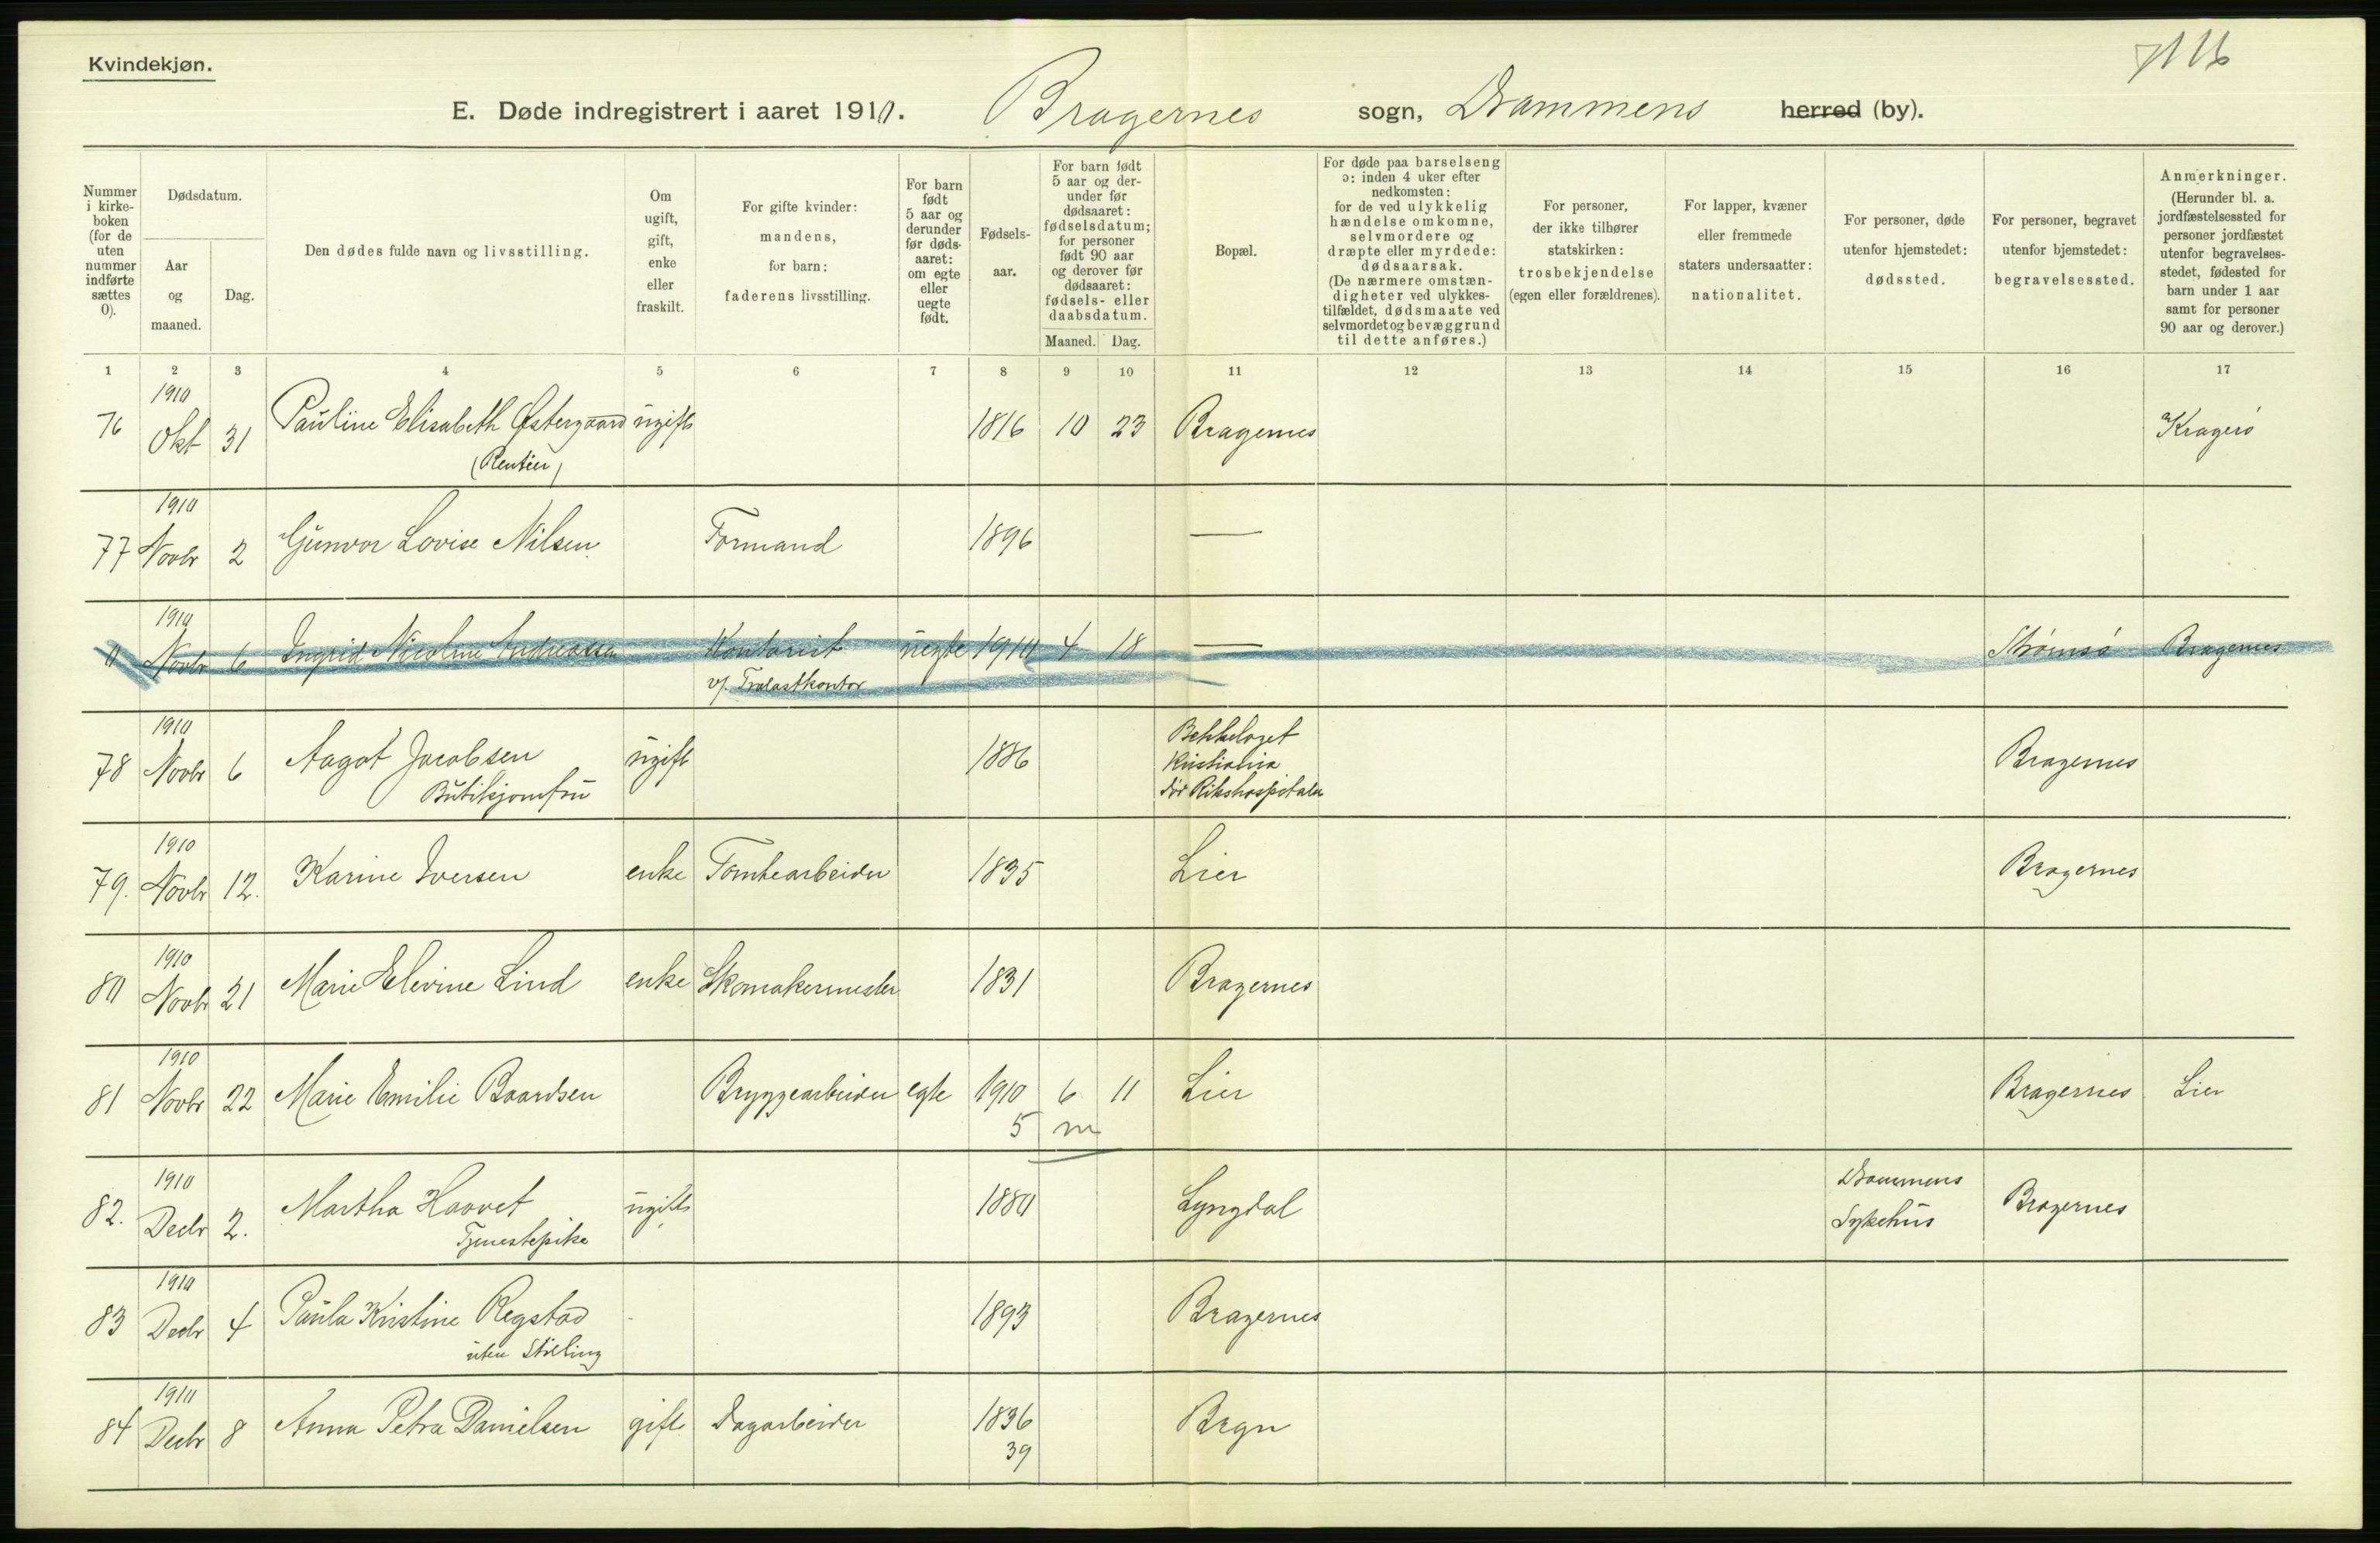 Kvindekjøn.
E. Døde indregistrert i aaret 1910. Bragernes sogn, Drammens herred (by).
Nummer i kirkeboken (for de uten nummer indførte sættes 0).
Dødsdatum.
Aar og maaned.
Dag.
Den dødes fulde navn og livsstilling.
Om ugift, gift, enke eller fraskilt.
For gifte kvinder: mandens, for barn: faderens livsstilling.
For barn født 5 aar og derunder før dødsaaret: om egte eller uegte født.
Fødselsaar.
For barn født 5 aar og derunder før dødsaaret: fødselsdatum; for personer født 90 aar og derover før dødsaaret: fødsels- eller daabsdatum.
Maaned. Dag.
Bopæl.
For døde paa barselseng ɔ: inden 4 uker efter nedkomsten: for de ved ulykkelig hændelse omkomne, selvmordere og dræpte eller myrdede: dødsaarsak. (De nærmere omstændigheter ved ulykkestilfældet, dødsmaate ved selvmordet og bevæggrund til dette anføres.)
For personer, der ikke tilhører statskirken: trosbekjendelse (egen eller forældrenes).
For lapper, kvæner eller fremmede staters undersaatter: nationalitet.
For personer, døde utenfor hjemstedet: dødssted.
For personer, begravet utenfor hjemstedet: begravelsessted.
Anmerkninger. (Herunder bl. a. jordfæstelsessted for personer jordfæstet utenfor begravelsesstedet, fødested for barn under 1 aar samt for personer 90 aar og derover.)
1 2 3 4 5 6 7 8 9 10 11 12 13 14 15 16 17
1910
76 Okt 31 Pauline Elisabeth Østergaard ugift 1816 10 23 Bragernes Kragerø
(Rentier)
1910
77 Novbr 2 Gunvor Lovise Nilsen Formand 1896 —
1910
0 Novbr 6 Ingrid Nicoline Andreassen Kontorist uegte 1910 4 18 — Strømsø Bragernes
v/. Trælastkontor
1910
78 Novbr 6 Aagot Jacobsen ugift 1886 Bekkelaget Kristiania dør Rikshospitalet Bragernes
Butikjomfru
1910
79. Novbr 12. Karine Iversen enke Tomtearbeider 1835 Lier Bragernes
1910
80 Novbr 21 Marie Elevine Lind enke Skomakermester 1831 Bragernes
1910
81 Novbr 22 Marie Emilie Baardsen Bryggearbeider egte 1910 6 11 Lier Bragernes Lier
5 m
1910
82. Decbr 2. Martha Haavet ugift 1880 Lyngdal Drammens Sykehus Bragernes
Tjenestepike
1910
83 Decbr 4 Paula Kristine Regstad 1893 Bragernes
uten Stilling
1910
84 Decbr 8 Anna Petra Danielsen gift Dagarbeider 1836 Brgn
39